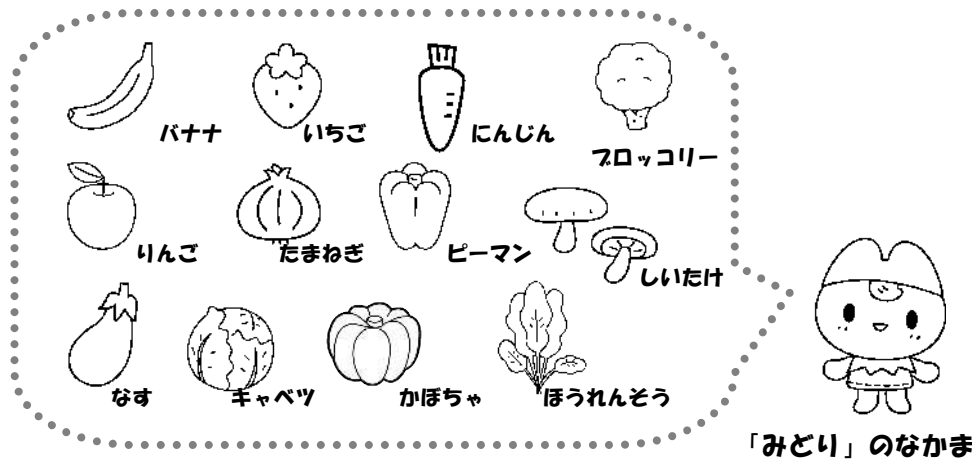 バナナ
いちご
にんじん
ブロッコリー
りんご
たまねぎ
ピーマン
しいたけ
なす
キャベツ
かぼちゃ
ほうれんそう
「みどり」のなかま